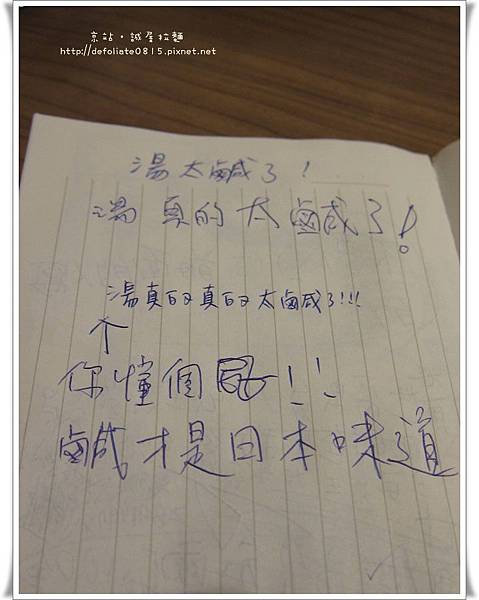 京站・誠屋拉麵
http://defoliate0815.pixnet.net
湯太鹹了!
湯真的太鹹了!
湯真的真的太鹹了!!!
你懂個屁!!
鹹才是日本味道